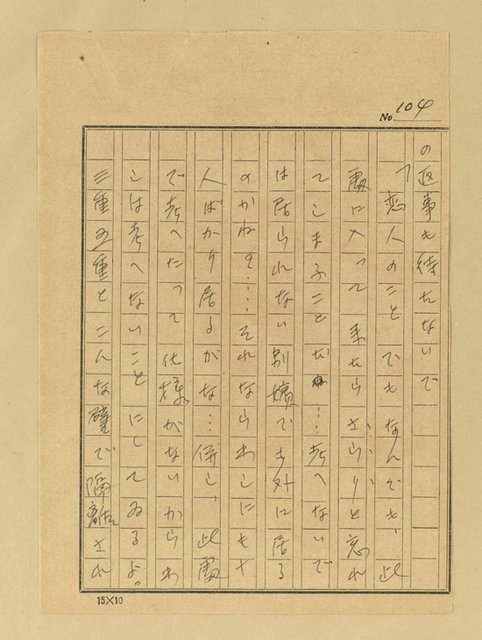 No. 104
の返事も待たないで
「恋人のこと でもなんでも、此
處に入って 来たらさらりと忘れ
てしまふことだね…考へないで
は居られない別嬪でも外に居る
のかね?……それならわしにも十
人ばかり居るがな…併し、此處
で考へたって仕様がないからわ
しは考へないことにしてゐるよ。
三重五重とこんな壁で隔離され
15×10